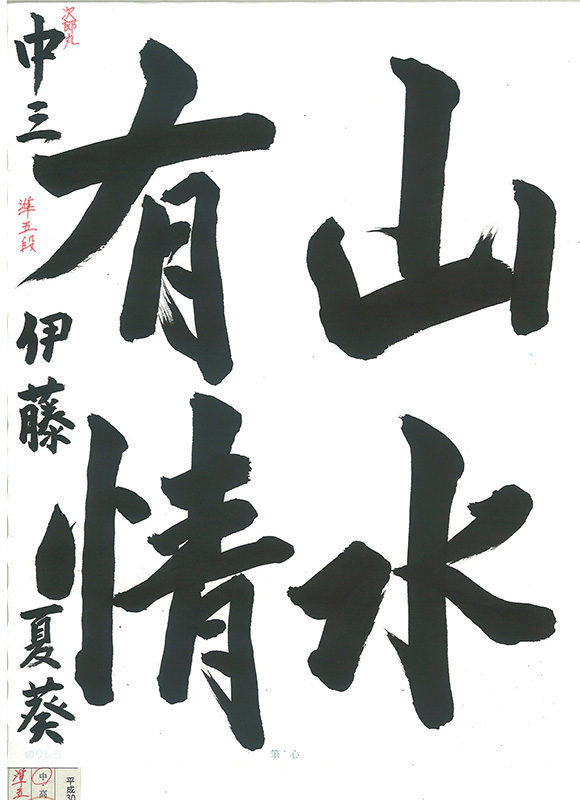 山水
有情
次郎丸
中三
準五段
伊藤
夏葵
のりしろ
筆心
準五
中・高
平成30